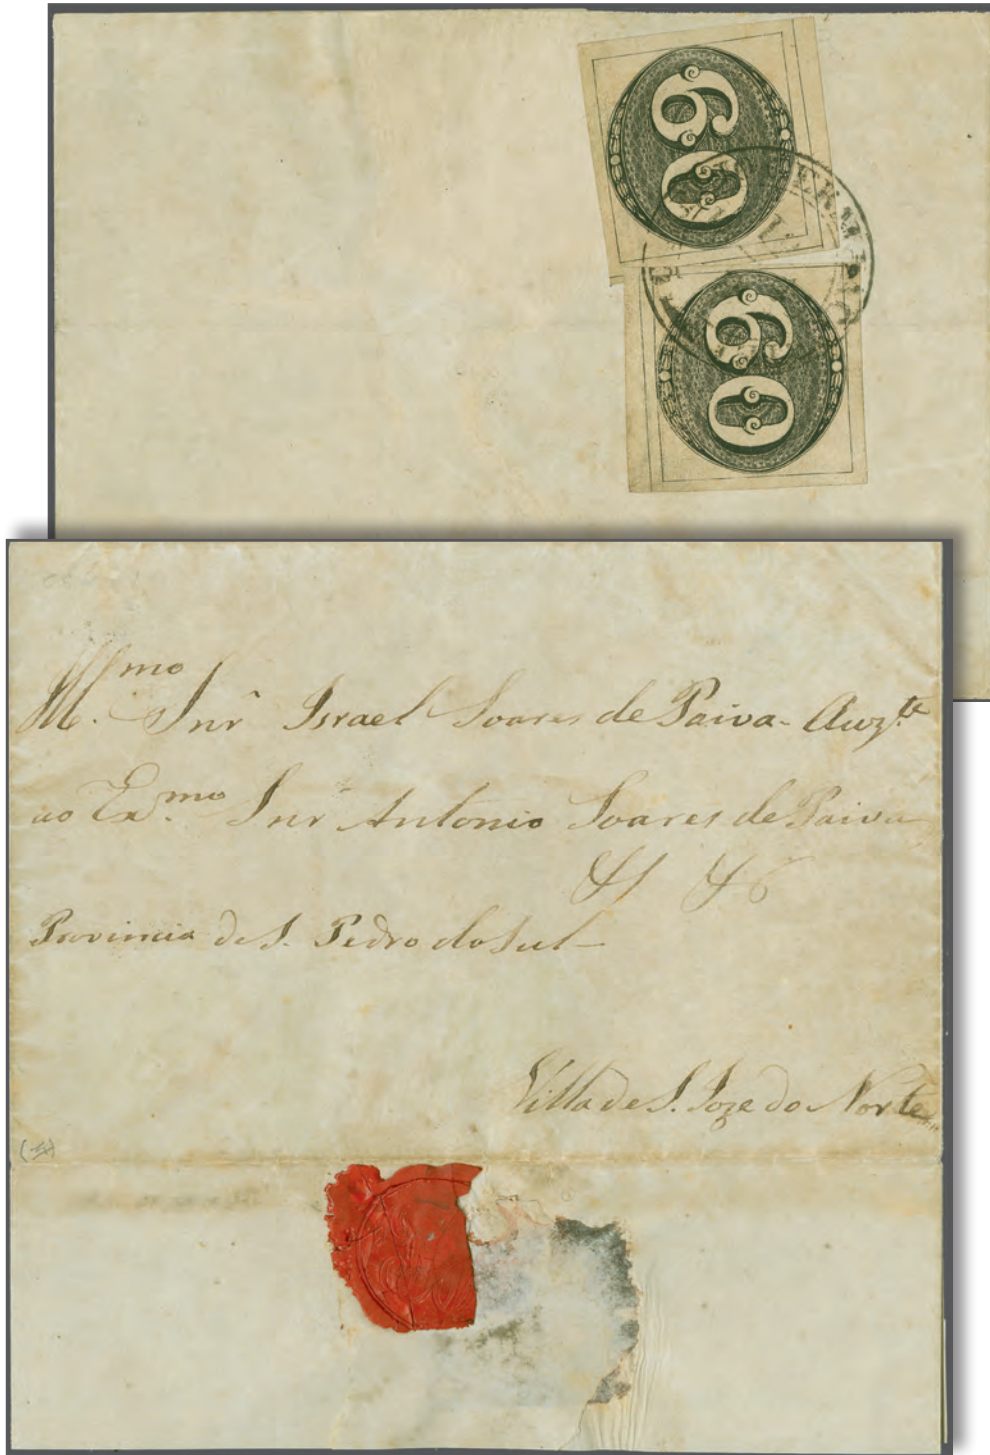 60
60
Ill.mo Snr Israel Soares de Paiva - Auz.te
ao Ex.mo Snr Antonio Soares de Paiva
Provincia de S. Pedro do Sul -
Villa de S. Joze do Norte